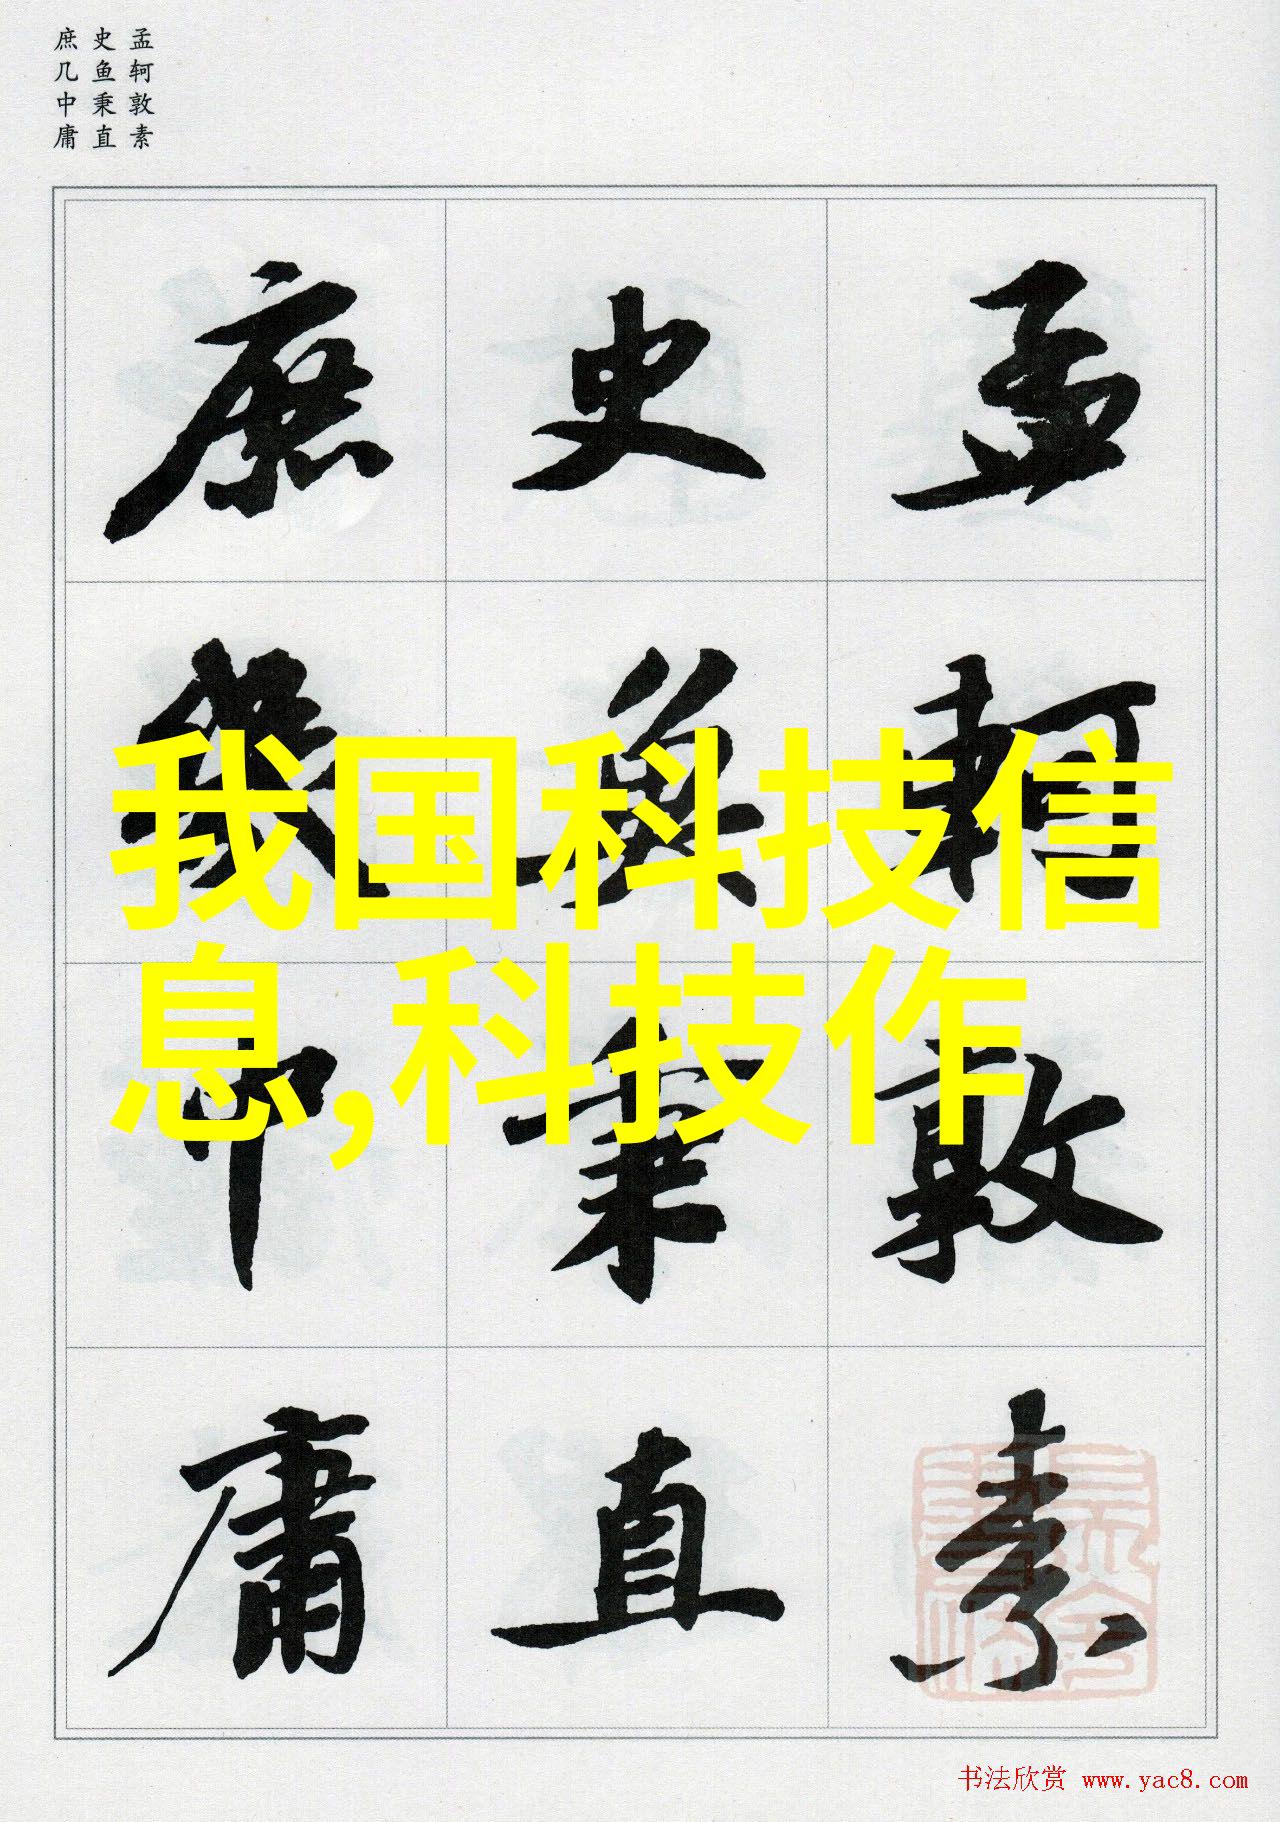 孟轲敦素
史鱼秉直
庶几中庸
孟轲敦素
史鱼秉直
庶几中庸
我国科技信
息,科技作
书法欣赏 www.yac8.com